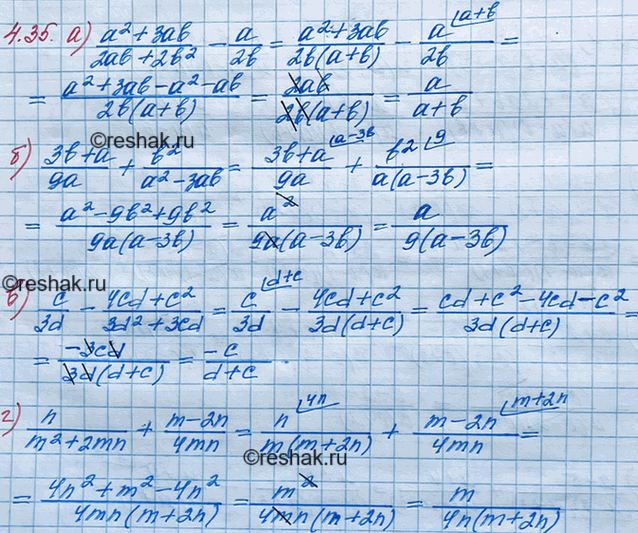 4.35. а) (a² + 3ab)/(2ab + 2b²) − a/2b = (a² + 3ab)/(2b(a+b)) − a/2b ⌊a+b =
= (a² + 3ab − a² − ab)/(2b(a+b)) = 2ab/(2b(a+b)) = a/(a+b)
©reshak.ru
б) (3b + a)/9a + b²/(a² − 3ab) = (3b + a)/9a ⌊a−3b + b²/(a(a−3b)) ⌊9 =
= (a² − 9b² + 9b²)/(9a(a−3b)) = a²/(9a(a−3b)) = a/(9(a−3b))
©reshak.ru
©reshak.ru
в) c/3d − (4cd + c²)/(3d² + 3cd) = c/3d ⌊d+c − (4cd + c²)/(3d(d+c)) = (cd + c² − 4cd − c²)/(3d(d+c)) =
= −3cd/(3d(d+c)) = −c/(d+c).
г) n/(m² + 2mn) + (m − 2n)/4mn = n/(m(m+2n)) ⌊4n + (m − 2n)/4mn ⌊m+2n =
©reshak.ru
= (4n² + m² − 4n²)/(4mn(m+2n)) = m²/(4mn(m+2n)) = m/(4n(m+2n))